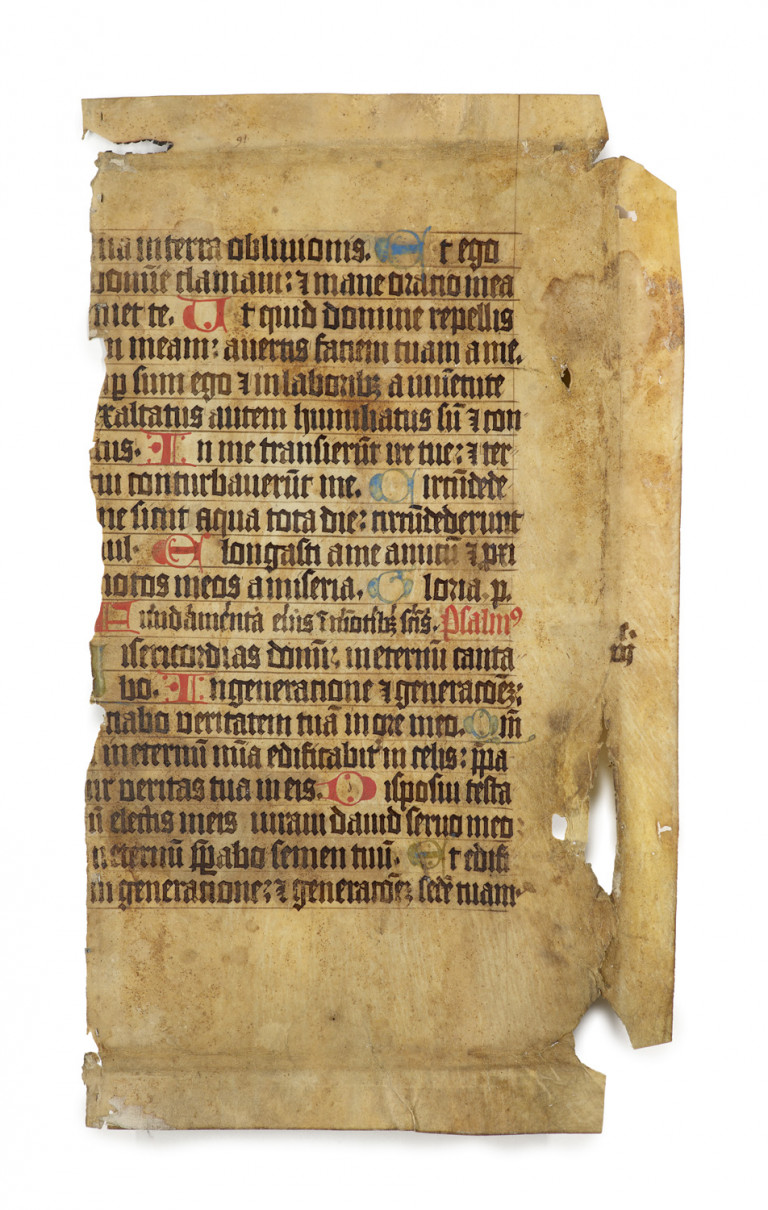 ua in terra obliuionis. Et ego
domīe clamaui: ⁊ mane oratio mea
niet te. Ut quid domine repellis
m meam: auertis faciem tuam a me.
p sum ego ⁊ in laboribꝫ a iuuētute
exaltatus autem humiliatus sū ⁊ con
tus. In me transierūt ire tue: ⁊ ter
tui conturbauerūt me. Circūdede
me sicut aqua tota die: circūdederunt
ul. Elongasti a me amicū ⁊ ꝓxi
notos meos a miseria. Gloria p.
Fūdamenta eius ī mōtibꝫ scīs. Psalmꝰ
isericordias domī: in eternū canta
bo. In generatione ⁊ generacōeꝫ:
nabo veritatem tuā in ore meo. Qm̄
in eternū mīa edificabit̄ in celis: p̄pa
ur veritas tua in eis. Disposui testa
ū electis meis iuraui dauid seruo meo:
in eternū p̄pabo semen tuū. Et edifi
in generatione: ⁊ generacōeꝫ sedē tuam